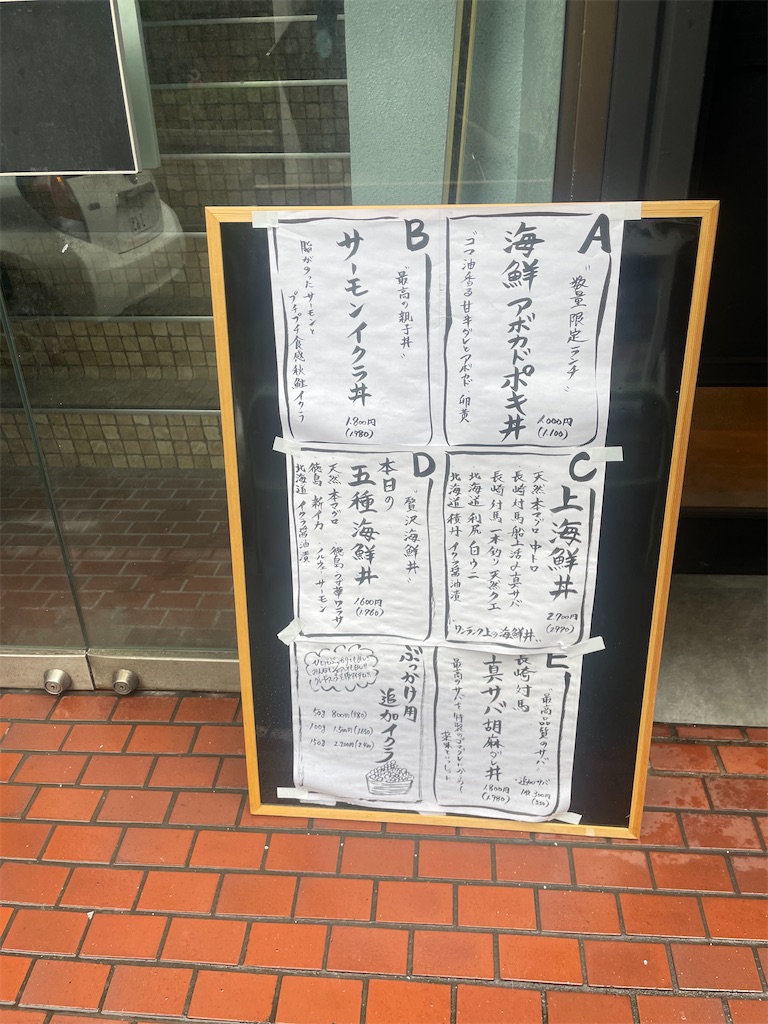 A
"数量限定ランチ"
海鮮アボカドポキ丼
1.000円
(1.100)
"ゴマ油香る甘辛ダレとアボカド 卵黄
B
"最高の親子丼"
サーモンイクラ丼
1.800円
(1.980)
脂がのったサーモンと
プチプチ食感秋鮭イクラ
C
上海鮮丼
2.700円
(2970)
天然本マグロ 中トロ
長崎対馬船上活〆真サバ
長崎対馬一本釣り天然クエ
北海道利尻 白ウニ
北海道積丹 イクラ醤油漬
"ワンランク上の海鮮丼"
D
"贅沢海鮮丼"
本日の
五種海鮮丼
1.600円
(1.760)
天然本マグロ
徳島 新イカ
ノルウェーサーモン
北海道 イクラ醤油漬
E
"最高品質のサバ"
長崎対馬
真サバ胡麻ダレ丼
1.800円
(1.980)
追加サバ
300円
(330)
ぶっかけ用
追加イクラ
50g 800円(880)
100g 1.500円(1.650)
150g